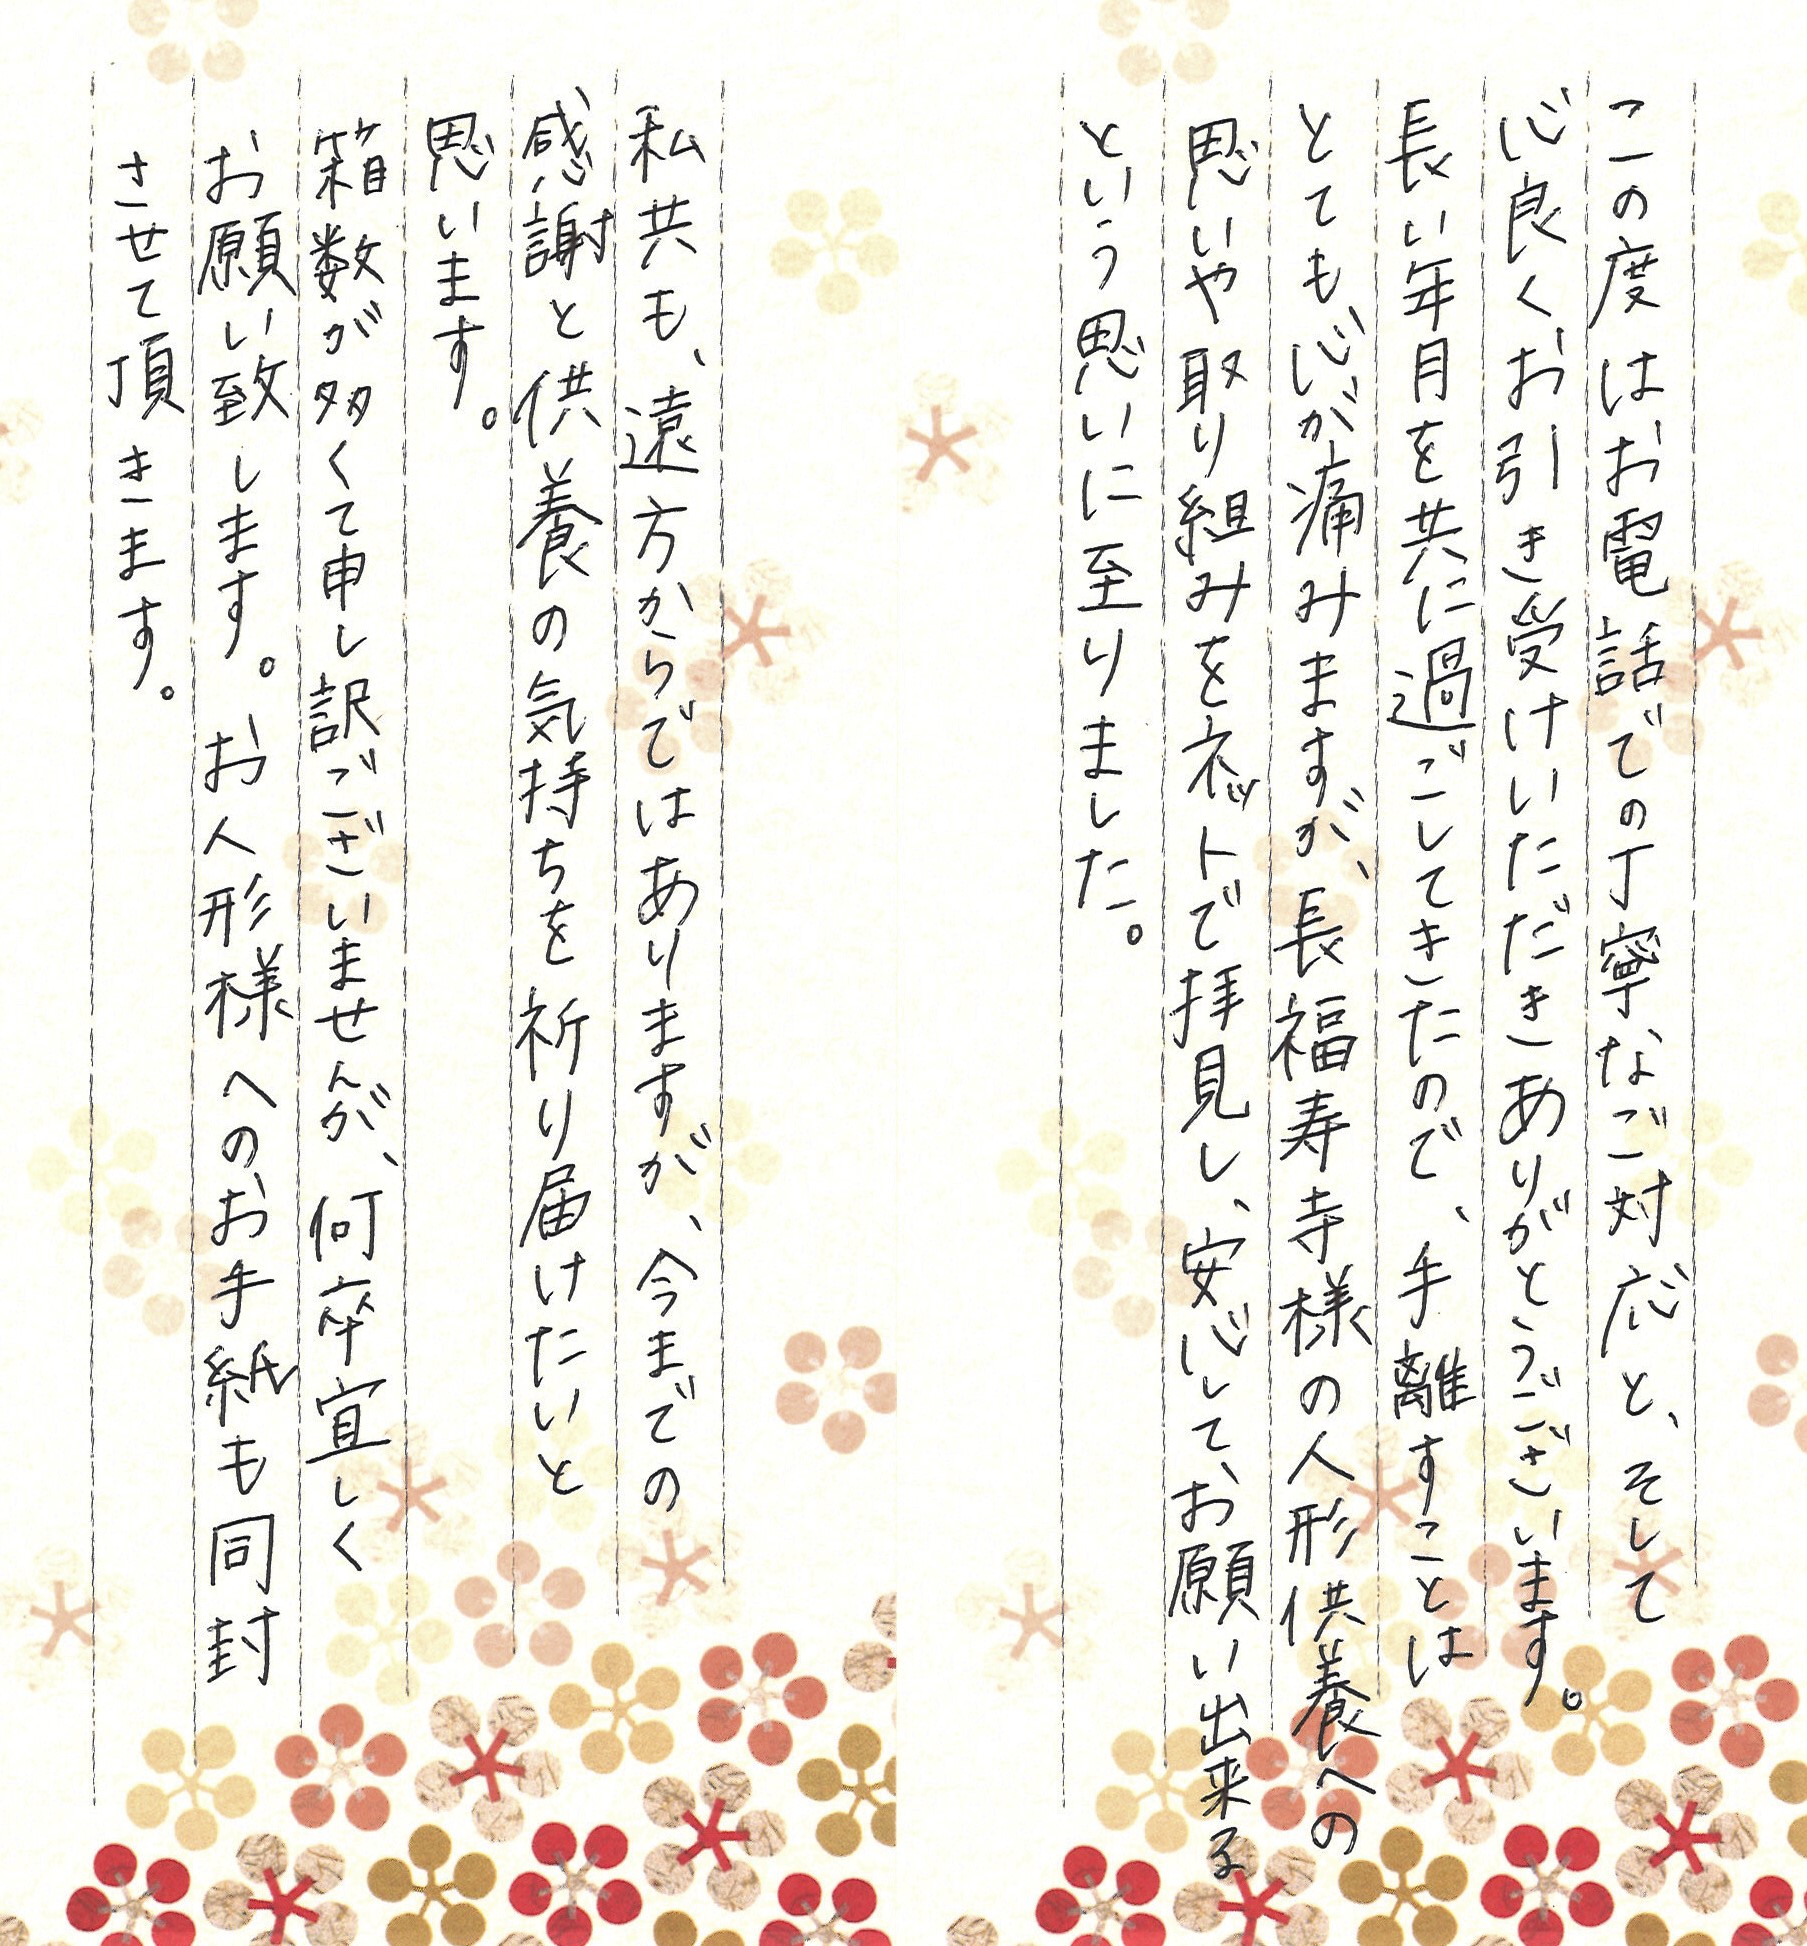 この度はお電話での丁寧なご対応と、そして
心良くお引き受けいただきありがとうございます。
長い年月を共に過ごしてきたので、手離すことは
とても心が痛みますが、長福寿寺様の人形供養への
思いや取り組みをネットで拝見し、安心して、お願い出来る
という思いに至りました。
私共も、遠方からではありますが、今までの
感謝と供養の気持ちを祈り届けたいと
思います。
箱数が多くて申し訳ございませんが、何卒宜しく
お願い致します。お人形様へのお手紙も同封
させて頂きます。